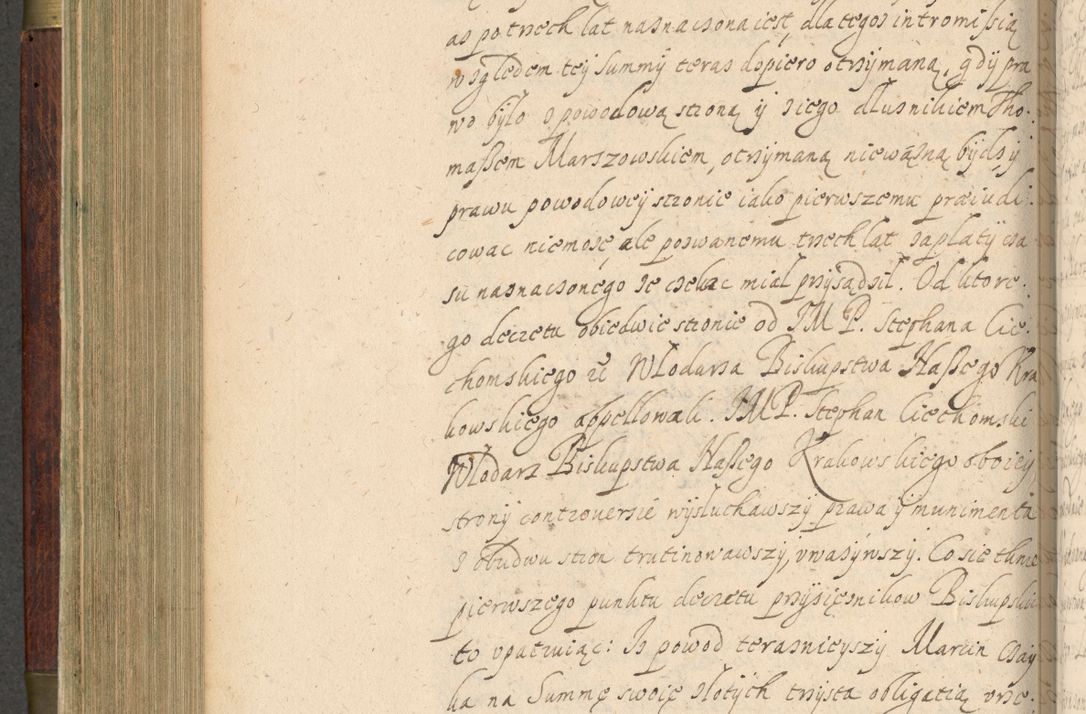 as po trzech lat naznaczona iest, dla tegoz intromissią
względem tey summy teraz dopiero otrzymaną, gdy pra
wo było z powodową stroną y z iego dłuznikiem Tho:
maszem Marszowskiem, otrzymaną niewazną bydz y
prawu powodowey stronie iako pierwszemu præiudi:
cowac niemoze, ale pozwanemu trzech lat zapłaty cza
su naznaczonego ze czekac miał przysądził. Od ktore:
go decretu obiedwie stronie od JM P. Stephana Cie:
chomskiego Włodarza Biskupstwa Naszego Kra
kowskiego appellowali. JM P. Stephan Ciechomski
Włodarz Biskupstwa Naszego Krakowskiego oboiey
strony controuersie wysłuchawszy prawa y munimenta
z obudwu stron trutinowawszy, vwazywszy. Co się tknie
pierwszego punktu decretu przysięznikow Biskupskich
to vpatruiąc: Iz powod teraznieyszy Marcin Czay
ka na Summę swoię złotych trzysta obligatią vrzę: